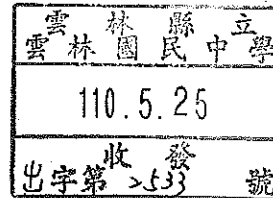 雲林縣立
雲林國民中學
110.5.25
收發
出字第2533號